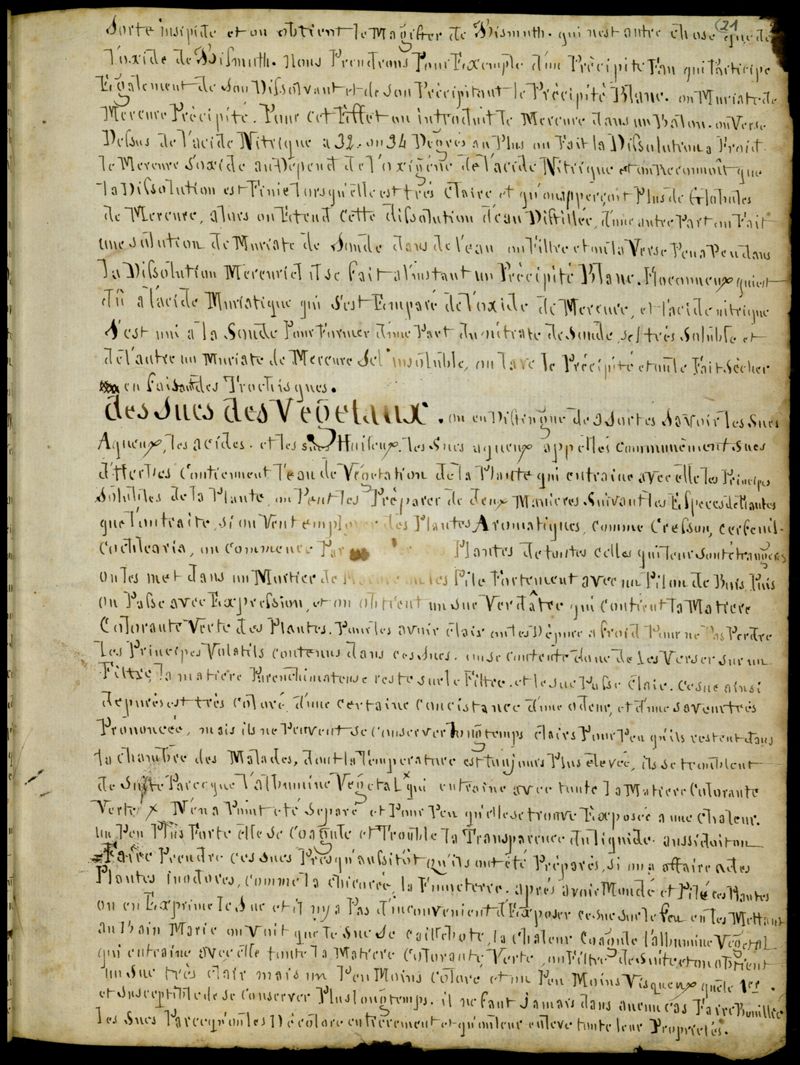 (21
Sorte insipide et on obtient le Magister de Bismuth. qui nest autre chose que de
l'oxide de Bismuth. Nous Prendrons Pour Exemple d'un Précipité Pan qui Participe
Egalement de Son Dissolvant et de Son Précipitant le Précipité Blanc. ou Muriate de
Mercure Précipité. Pour cet Effet on introduit le Mercure dans un Balon. on Verse
Dessus de l'acide Nitrique a 32. ou 34 Degrés au Plus on Fait la Dissolution a Froid
le Mercure S'oxide au Dépend de l'oxigène de l'acide Nitrique et on Reconnoît que
la Dissolution est Finie lorsqu'elle est très Claire et qu'on apperçoit Plus de Globules
de Mercure, alors on Etend Cette dissolution d'eau Distillée, d'une autre Part on Fait
une solution de Muriate de Soude dans de l'eau on Filtre et on la Verse Peu a Peu dans
la Dissolution Mercuriel il se fait a l'instant un Précipité Blanc. Floconneux qui est
dû a l'acide Muriatique qui S'est Emparé de l'oxide de Mercure, et l'acide nitrique
S'est uni a la Soude Pour Former d'une Part du nitrate de Soude, sel très Soluble et
de l'autre un Muriate de Mercure Sel insoluble, on lave le Précipité et on le Fait Sècher
en faisant des Trochisques.
des Sucs des Vegetaux. on en Distingue de 3 Sortes Savoir les Sucs
Aqueux, les acides. et les Huileux. les Sucs aqueux appellés Communément Sucs
d'Herbes Contiennent l'eau de Végétation de la Plante qui entraine avec elle les Principes
Solubles de la Plante, on Peut les Préparer de deux Manieres Suivant les Especes de Plantes
que l'on traite, si on Veut employer des Plantes Aromatiques, Comme Cresson, Cerfeuil.
Cochlearia, on Commence Par Plantes de toutes celles qui leur sont étrangeres
on les met dans un Mortier de on les Pile Fortement avec un Pilon de Buis Puis
on Passe avec Expression, et on obtient un Suc Verdâtre qui Contient la Matiere
Colorante Verte des Plantes. Pour les avoir clair on les Dépure a froid Pour ne Pas Perdre
les Principes Volatils contenus dans ces Sucs. on se contente donc de les Verser sur un
Filtre, la matiere Parenchimateuse reste sur le Filtre. et le suc Passe Clair. Ce suc ainsi
depuré est très coloré d'une certaine Concistance d'une odeur, et d'une saveur très
Prononcée, mais ils ne Peuvent se conserver longtemps clairs Pour Peu qu'ils restent dans
la chambre des Malades, dont la Température est toujours Plus élevée, ils se troublent
de Suite Parceque l'albumine Végétal qui entraine avec toute la Matiere Colorante
Verte N'en a Point été Séparé et Pour Peu qu'elle se trouve Exposée a une Chaleur.
un Peu Plus Forte elle se Coagule et Trouble la Transparence du liquide. aussi doit on
Faire Prendre ces Sucs Presqu'aussitôt qu'ils ont été Préparés, Si on a affaire a des
Plantes inodores, Comme la chicorée, la Fumeterre. après avoir Mondé et Pilé ces Plantes
on en Exprime le Suc et il n'y a Pas d'inconvenient d'Exposer ce suc sur le feu en les Mettant
au Bain Marie on voit que le Suc se caillebote, la Chaleur Coagule l'albumine Végétal
qui entraine avec elle toute la Matiere Colorante Verte, on Filtre de Suite et on obtient
un Suc très clair mais un Peu Moins coloré et un Peu Moins Visqueux que le 1er.
et Susceptible de se Conserver Plus longtemps. il ne faut jamais dans aucun cas Faire Bouillir
les Sucs Parcequ'on les Décolore entièrement et qu'on leur enleve toute leur Propriétés.